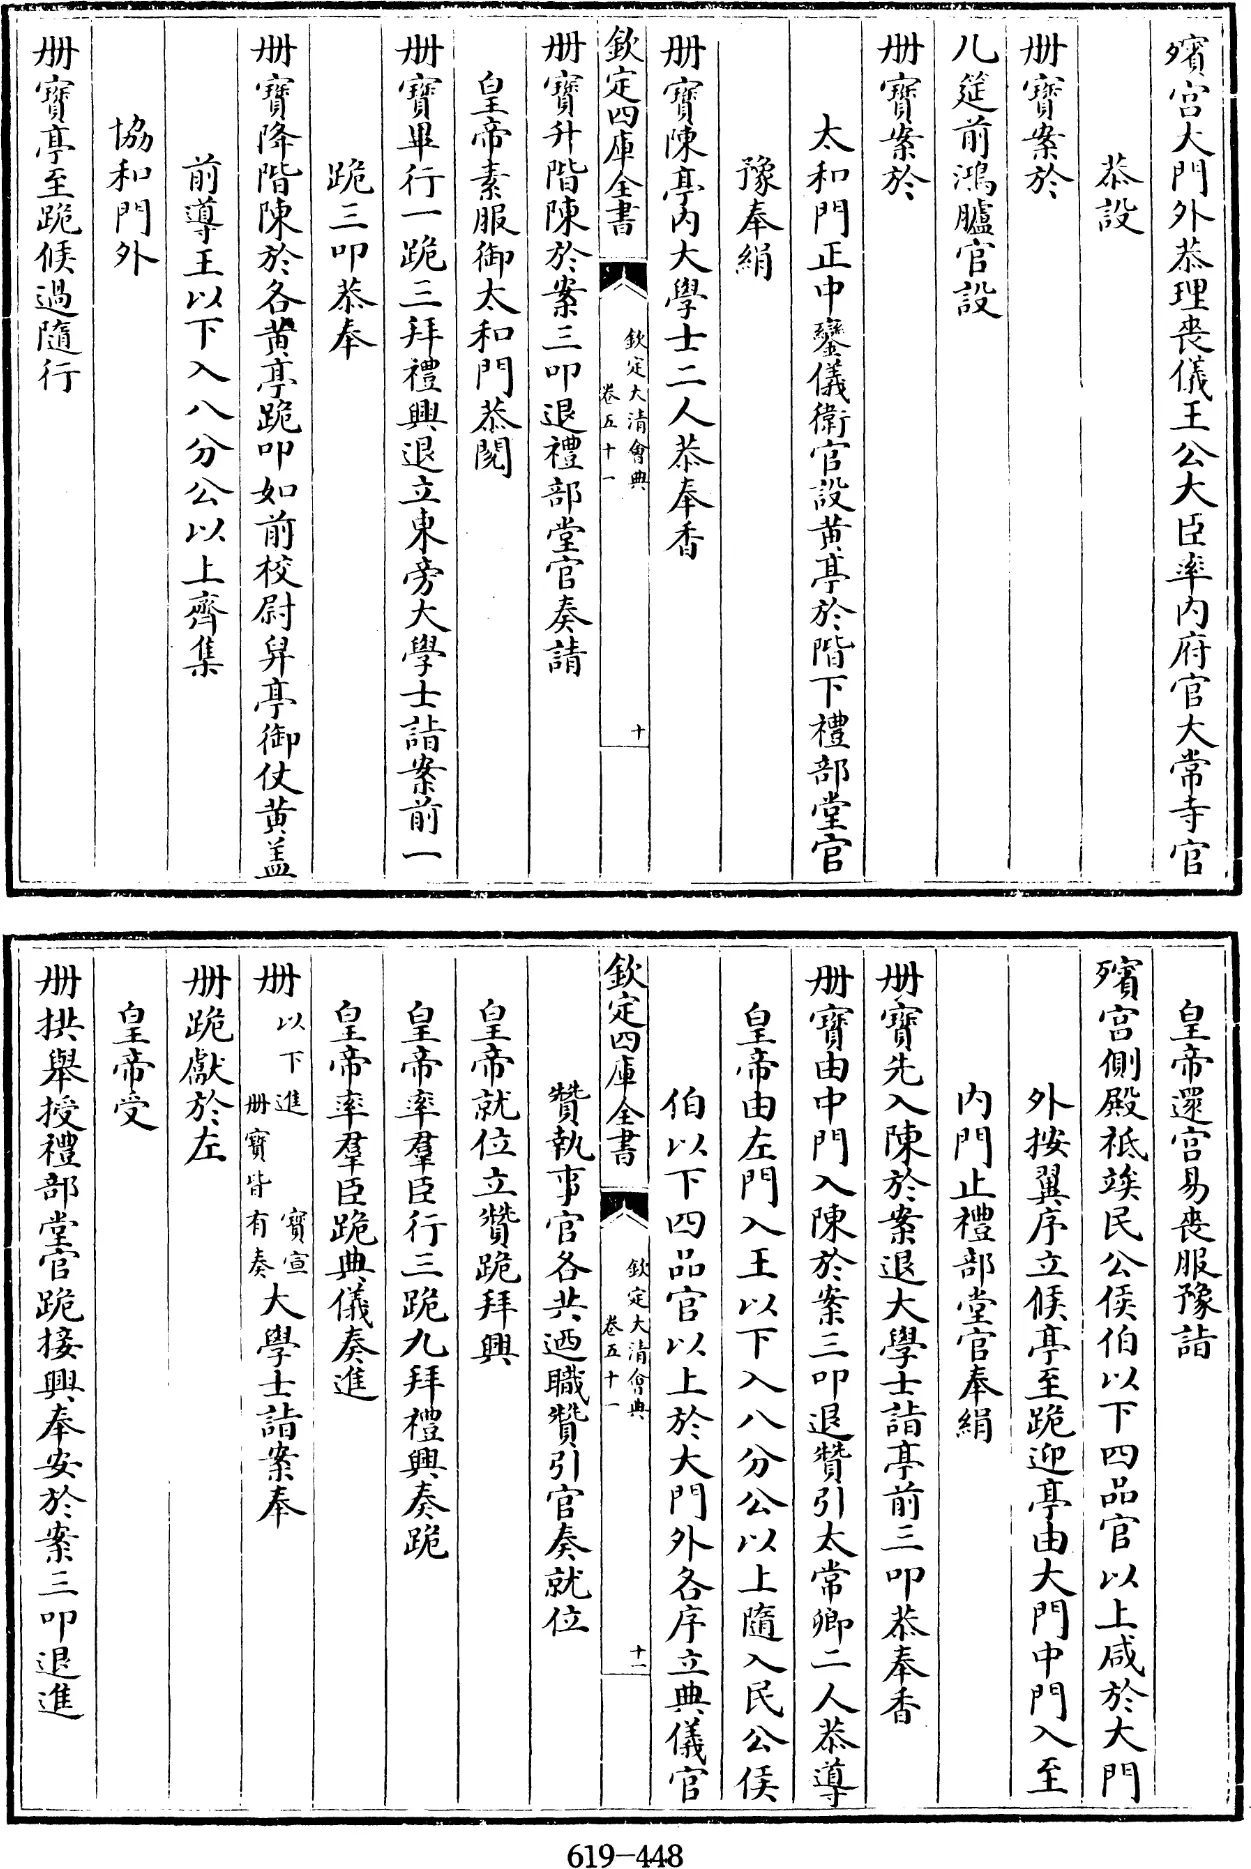 殯宫大門外恭理喪儀王公大臣率内府官大常寺官
恭設
册寳案於
几筵前鴻臚官設
册寳案於
太和門正中鑾儀衛官設黄亭於階下禮部堂官
豫奉絹
册寳陳亭内大學士二人恭奉香
欽定四庫全書
欽定大清會典
卷五十一
十
册寳升階陳於案三叩退禮部堂官奏請
皇帝素服御太和門恭閱
册寳畢行一跪三拜禮興退立東旁大學士詣案前一
跪三叩恭奉
册寳降階陳於各黄亭跪叩如前校尉舁亭御仗黄盖
前導王以下入八分公以上齊集
協和門外
册寳亭至跪候過隨行
皇帝還宫易喪服豫詣
殯宫側殿祗竢民公侯伯以下四品官以上咸於大門
外按翼序立候亭至跪迎亭由大門中門入至
内門止禮部堂官奉絹
册寳先入陳於案退大學士詣亭前三叩恭奉香
册寳由中門入陳於案三叩退贊引太常卿二人恭導
皇帝由左門入王以下入八分公以上隨入民公侯
伯以下四品官以上於大門外各序立典儀官
欽定四庫全書
欽定大清會典
卷五十一
十一
贊執事官各共迺職贊引官奏就位
皇帝就位立贊跪拜興
皇帝率羣臣行三跪九拜禮興奏跪
皇帝率羣臣跪典儀奏進
册以下進寳宣册寳皆有奏大學士詣案奉
册跪獻於左
皇帝受
册拱舉授禮部堂官跪接興奉安於案三叩退進
619-448